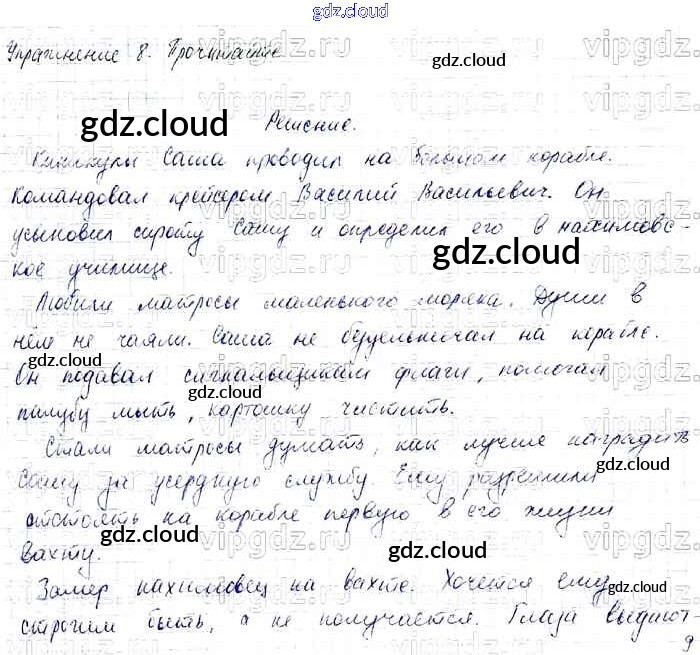 gdz.cloud
Упражнение 8. Прочитайте
gdz.cloud
gdz.cloud
Решение.
Каникулы Саша проводил на большом корабле.
Командовал крейсером Василий Васильевич. Он
gdz.cloud
усыновил сироту Сашу и определил его в нахимовс-
gdz.cloud
кое училище.
Любили матросы маленького моряка. Души в
нём не чаяли. Саша не бездельничал на корабле.
gdz.cloud
gdz.cloud
Он подавал сигнальщикам флаги, помогал
палубу мыть, картошку чистить.
Стали матросы думать, как лучше наградить
gdz.cloud
Сашу за усердную службу. Ему разрешили
отстоять на корабле первую в его жизни
вахту.
gdz.cloud
Замер нахимовец на вахте. Хочется ему
gdz.cloud
строгим быть, а не получается. Глаза выдают
9